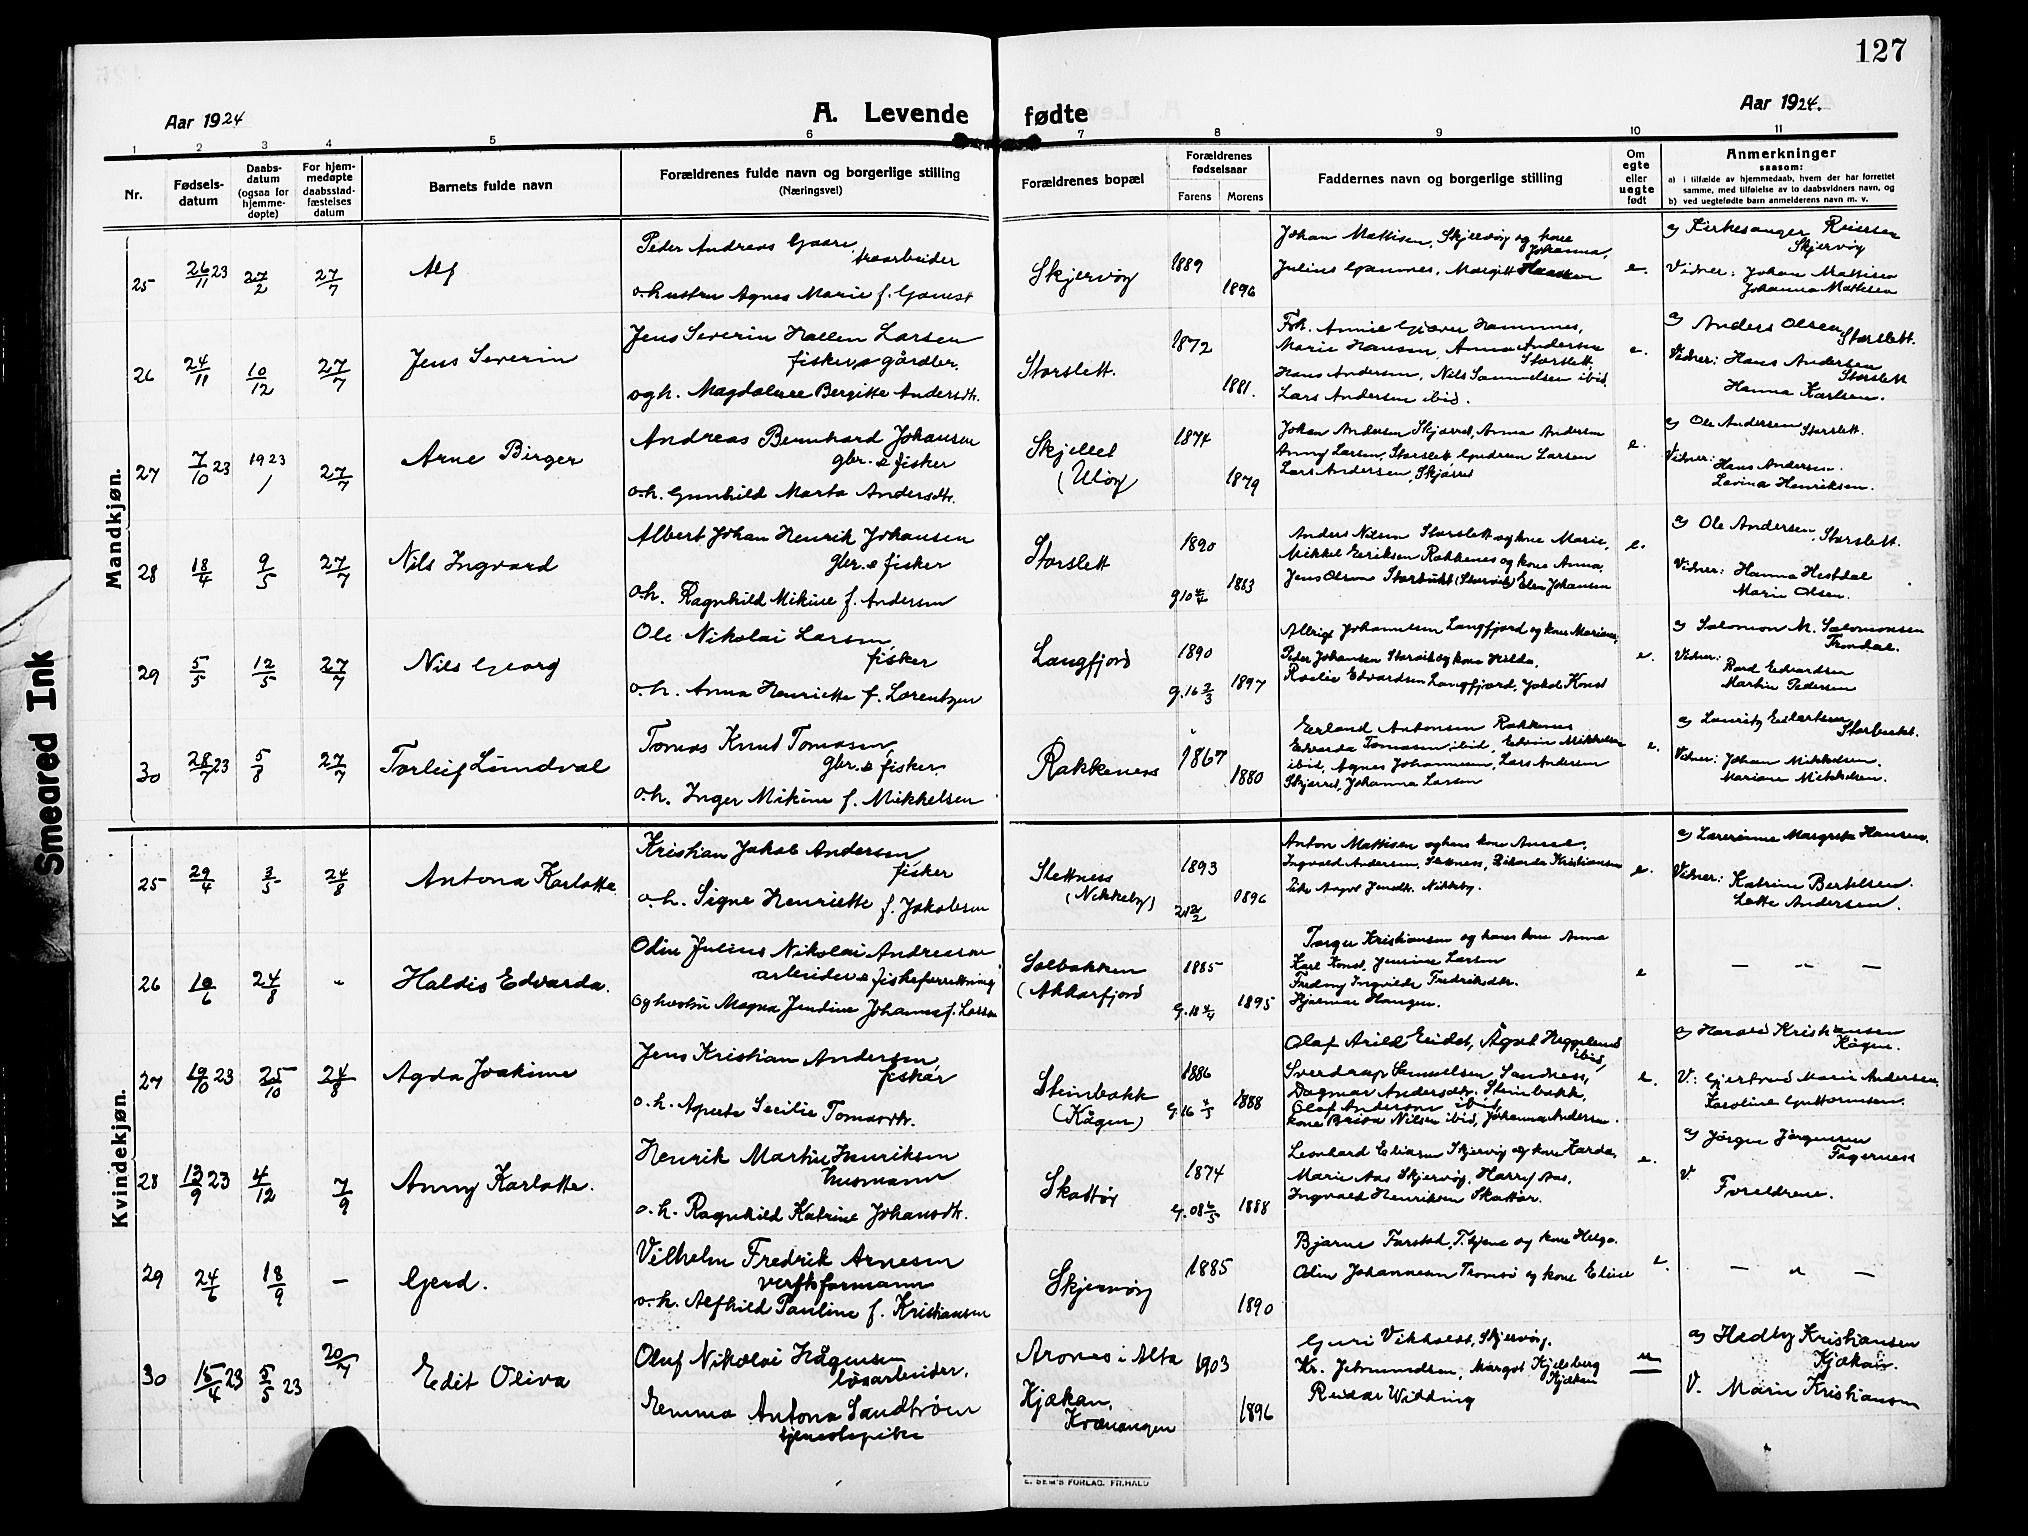 127
Aar 1924
A. Levende fødte
Aar 1924.
1 2 3 4 5 6 7 8 9 10 11
Nr.
Fødsels-
datum
Daabs-
datum
(ogsaa for
hjemme-
døpte)
For hjem-
medøpte
daabsstad-
fæstelses
datum
Barnets fulde navn
Forældrenes fulde navn og borgerlige stilling
(Næringsvei)
Forældrenes bopæl
Forældrenes
fødselsaar
Farens Morens
Faddernes navn og borgerlige stilling
Om
egte
eller
uegte
født
Anmerkninger
saasom:
a) i tilfælde av hjemmedaab, hvem der har forrettet
samme, med tilføielse av to daabsvidners navn, og
b) ved uegtefødte barn anmelderens navn m. v.
Mandkjøn.
25 26/11 23 27/2 27/7 Alf
Peder Andreas Gaare,
o. hustru Agnes Marie f.
Skjervøy 1889 1896
Johan Mattisen, Skjervøy og kone
Johanna,
Julius
e.
a) Kirkesanger
Skjervøy
Vidner: Johan Mattisen
Johanna Mattisen
26 24/11 10/12 27/7 Jens Severin
Jens Severin Hallen Larsen
fisker o gårdbr.
og h. Magdalene Bergitte Andersdtr.
Storslett. 1872 1881.
Marie Hansen, Anna Andersen
Storslett,
Hans Andersen, Nils Samuelsen ibid.
Lars Andersen ibid.
e.
a) Anders Olsen
Storslett.
Vidner: Hans Andersen
Storslett
Hanna Karlsen.
27 7/10 23 1923 / 27/7 Arne Birger
Andreas Bernhard Johansen
gbr. o fisker
o. h. Gunhild Marta Andersdtr.
(Uløy 1874 1879
Johan Andersen Skjærret, Anna Andersen
Anny Larsen, Storslett, Gudrun Larsen
Lars Andersen, Skjærret
e.
a) Ole Andersen
Storslett.
Vidner:
Hans Andersen.
Lovina Henriksen.
28 18/4 9/5 27/7 Nils Ingvard
Albert Johan Henrik Johansen
gbr. o fisker
o. h. Ragnhild Mikine f. Andersen
Storslett 1890 1883
Anders Nilsen Storslett og kone Marie,
Mikkel Eriksen Rakkenes og kone Anna,
Jens Olsen Elen Johansen
e.
a) Ole Andersen,
Storslett.
Vidner: Hanna Hestdal
Marie Olsen.
29 5/5 12/5 27/7 Nils Georg
Ole Nikolai Larsen,
fisker
o. h. Anna Henriette f. Lorentzen
Langfjord 1890 g. 16 1897
Johannesen Langfjord og kone Mariane,
Peder Johansen og kone Hilda,
Edvardsen Langfjord, Jakob Konst
e.
a) Salomon M. Salomonsen
Vidner:
Edvardsen
Martin Pedersen
30 28/7 23 5/8 27/7 Torleif Lundval
Tomas Knut Tomasen,
gbr. o fisker.
o. h. Inger Mikine f. Mikkelsen
Rakkenes 1867 1880
Erland Antonsen Rakkenes
Edvarda Tomasen ibid, Edvin Mikkelsen
ibid, Agnes Johannesen, Lars Andersen
Skjærret, Johanna Larsen
e.
Vidner: Johan Mikkelsen.
Mariane Mikkelsen.
Kvindekjøn.
25 29/4 3/5 24/8 Antona Karlotte
Kristian Jakob Andersen,
fisker
o. h. Signe Henriette f. Jakobsen
(Nikkeby) 1893 1896
Anton Mattisen og hans kone
Ingvald Andersen, Kristiansen
Nikkeby.
e.
a) Lærerinne Margreta Hansen.
Vidner: Katrine Bertelsen.
Lotte Andersen.
26 10/6 24/8 - Haldis Edvarda.
Odin Julius Nikolai Andreassen
arbeider o fiskeforretning
og hustru Magna Jendine Johanna f. Larsen
Solbakken
(Akkarfjord 1885 1895
Torger Kristiansen og hans kone Anna
Karl Konst, Jensine Larsen
Fredny Ingvilde Fredriksdtr.
Hjalmar Haugen.
e
— " —
27 19/10 23 25/10 24/8 Agda Joakime
Jens Kristian Andersen,
fisker
o. h. Agnete Secilie Tomasdtr.
Steinbakk
(Kågen) 1886 1888
Olaf Arild Eidet, Ågot Heggelund
ibid,
Sverdrup Samuelsen, Sandnes,
Dagmar Andersdtr. Steinbakk,
Olaf Andersen ibid,
kone Nilsen ibid, Johanna Andersen.
e.
a) Harald Kristiansen
Kågen.
V: Gjertrud Marie Andersen,
Karoline Guttormsen.
28 13/9 23 4/12 7/9 Anny Karlotte.
Henrik Martin Henriksen
husmann
o. h. Ragnhild Katrine Johansdtr.
Skattør 1874 1888
Leonhard Eliasen Skjervøy og kone
Marie Aas Skjervøy, Harry Aas,
Ingvald Henriksen Skattør.
e.
a) Jörgen Jörgensen
Tagernes
V
Foreldrene.
29 24/6 18/9 — Gerd.
Vilhelm Fredrik Arnesen
verftsformann
o. h. Alfhild Pauline f. Kristiansen
Skjervøy 1885 1890
Bjarne Farstad, og kone Helga.
Odin Johannesen Tromsö og kone Elise
e.
— " —
30 15/4 23 5/5 23 20/7 Edit Oliva
Oluf Nikolai Hågensen
løsarbeider,
Emma Antona Sandtrøen
tjenestepike
Aronnes i Alta 1903
Kjækan,
Kvænangen 1896
Guri Vikholdt, Skjervøy.
Kr. Margot Kjelsberg
Kjækan
Reidar Widding
u
a) Hedley Kristiansen
Kjækan.
V. Marie Kristiansen
E. SEM'S FORLAG. FR.HALD
Smeared Ink